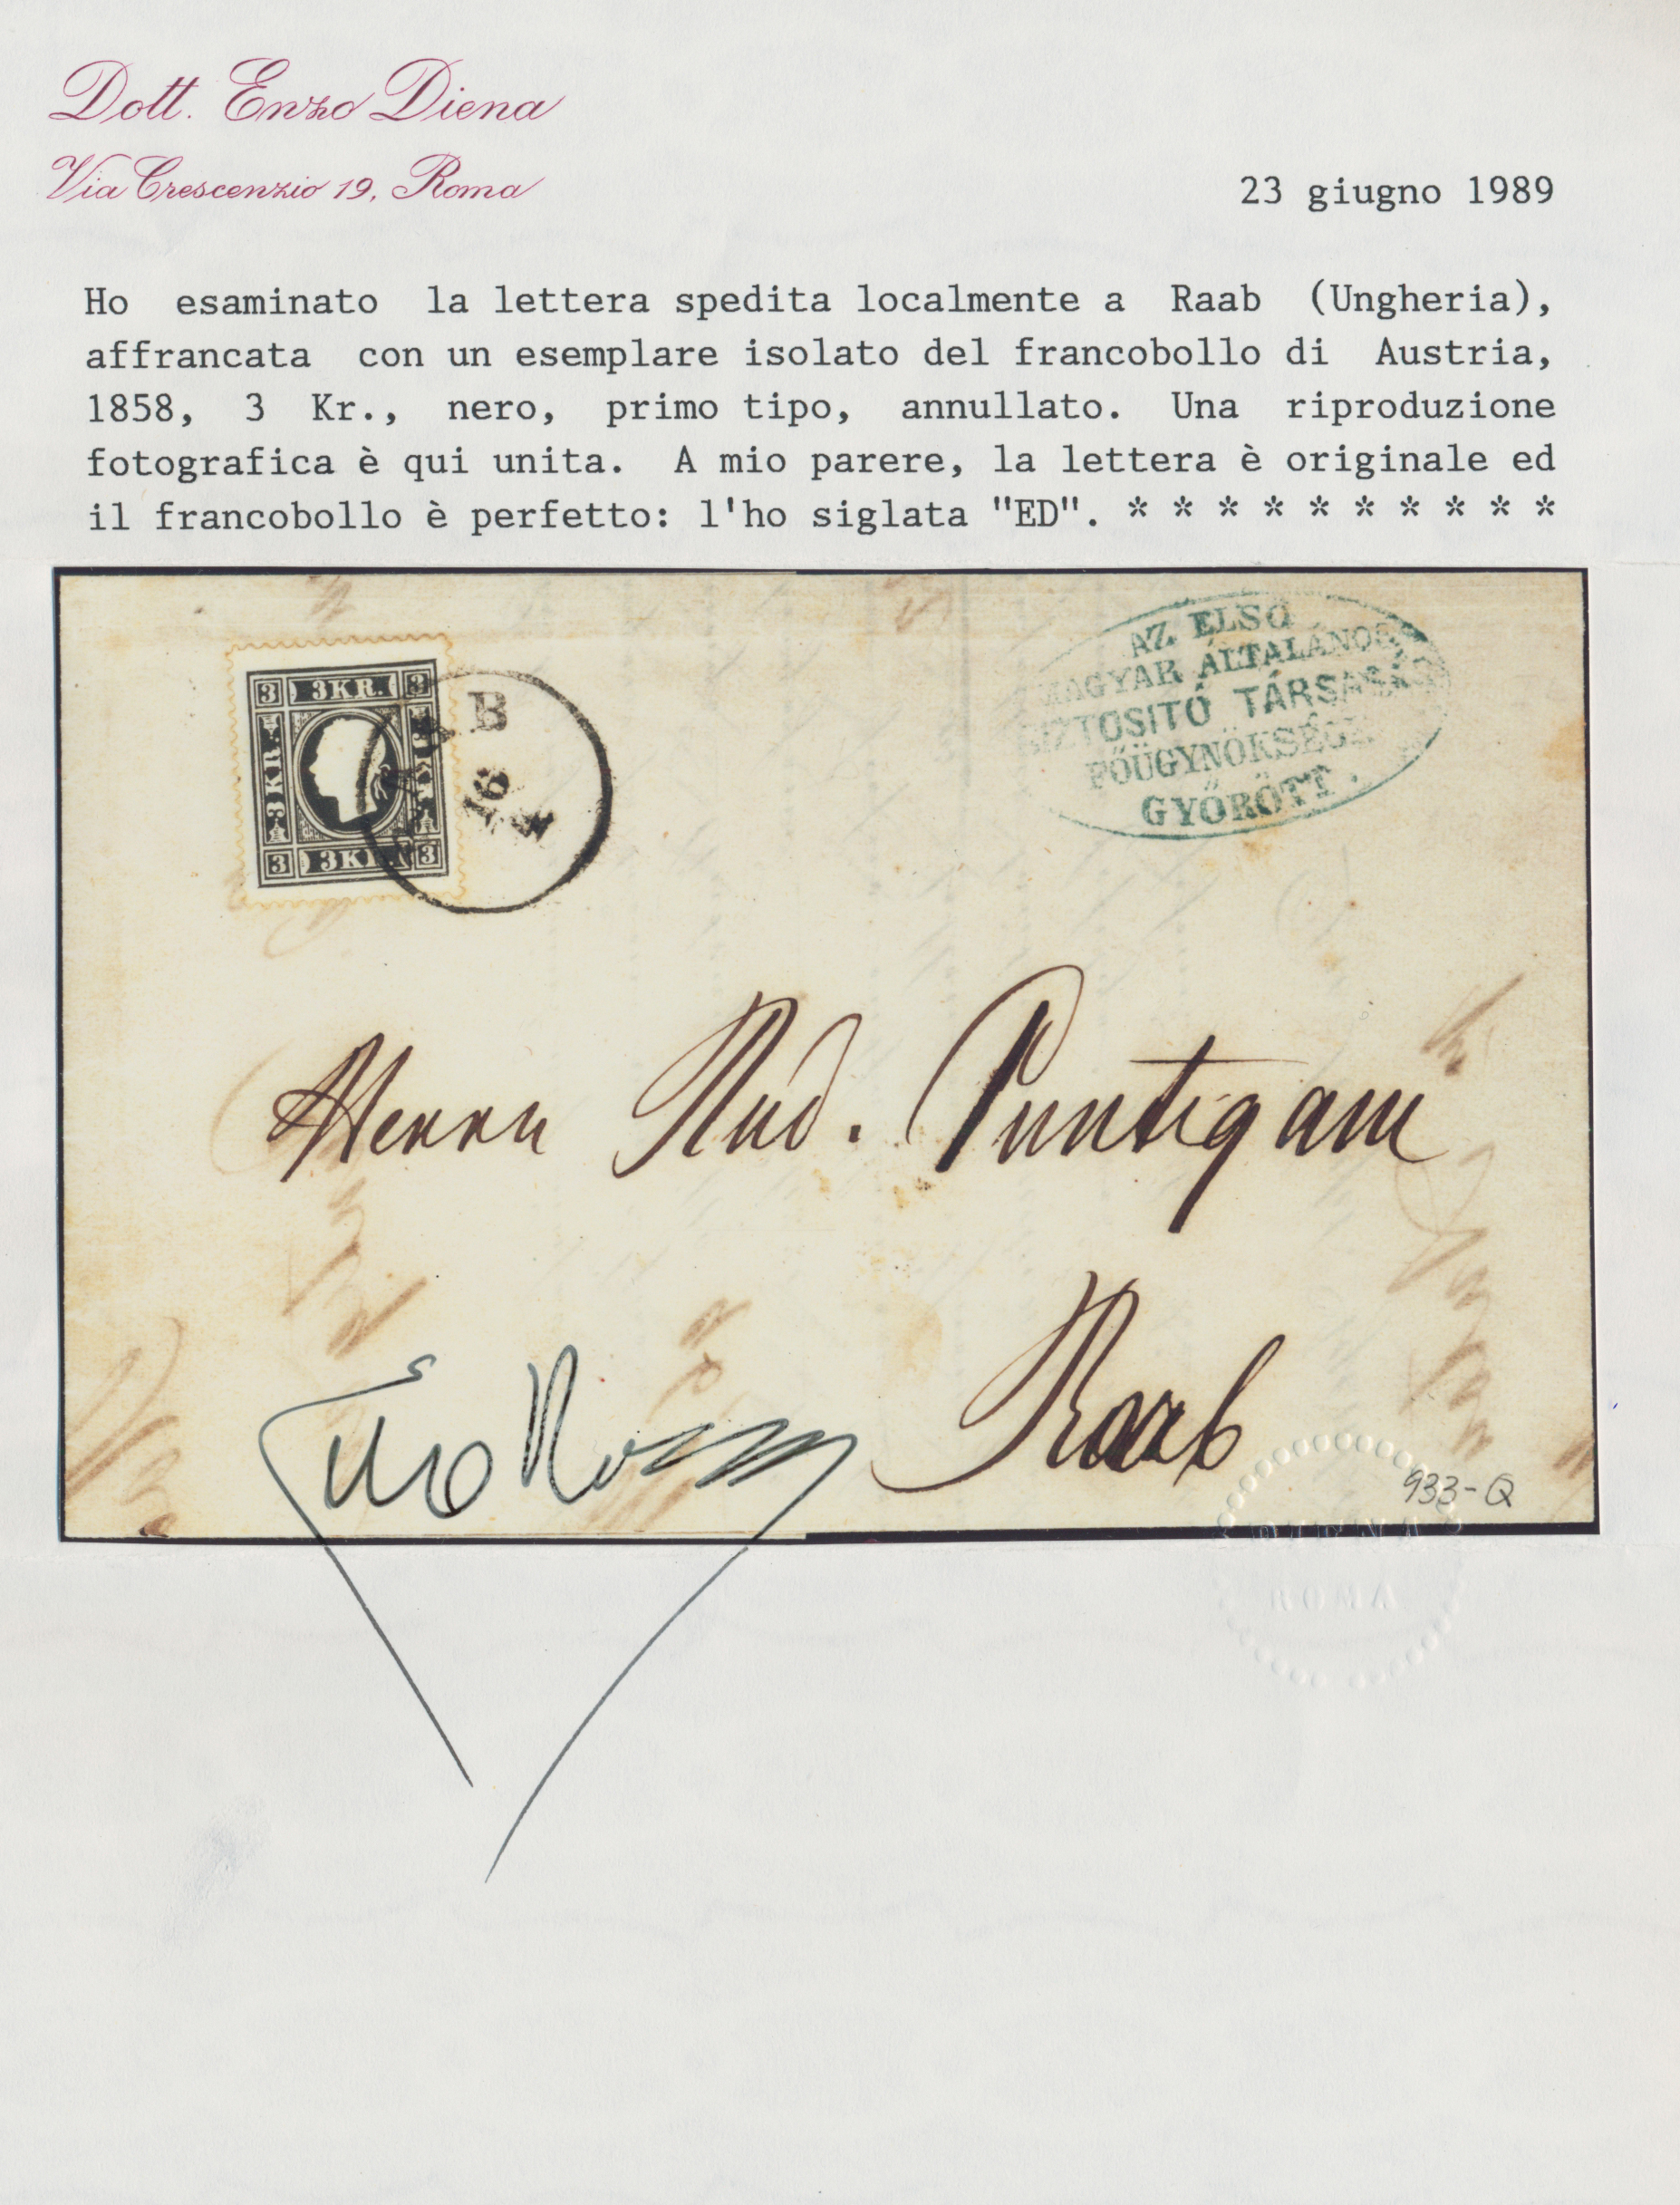 Dott. Enzo Diena
Via Crescenzio 19, Roma
23 giugno 1989
Ho esaminato la lettera spedita localmente a Raab (Ungheria),
affrancata con un esemplare isolato del francobollo di Austria,
1858, 3 Kr., nero, primo tipo, annullato. Una riproduzione
fotografica è qui unita. A mio parere, la lettera è originale ed
il francobollo è perfetto: l'ho siglata "ED". * * * * * * * * * *
3 3KR. 3
3KR.
3 3KR. 3
RAAB
16
AZ ELSŐ
MAGYAR ÁLTALÁNOS
BIZTOSITÓ TÁRSASÁG
FŐÜGYNÖKSÉGE
GYŐRÖTT.
Herrn Rud. Puntigam
Raab
933-Q
DIENA
ROMA